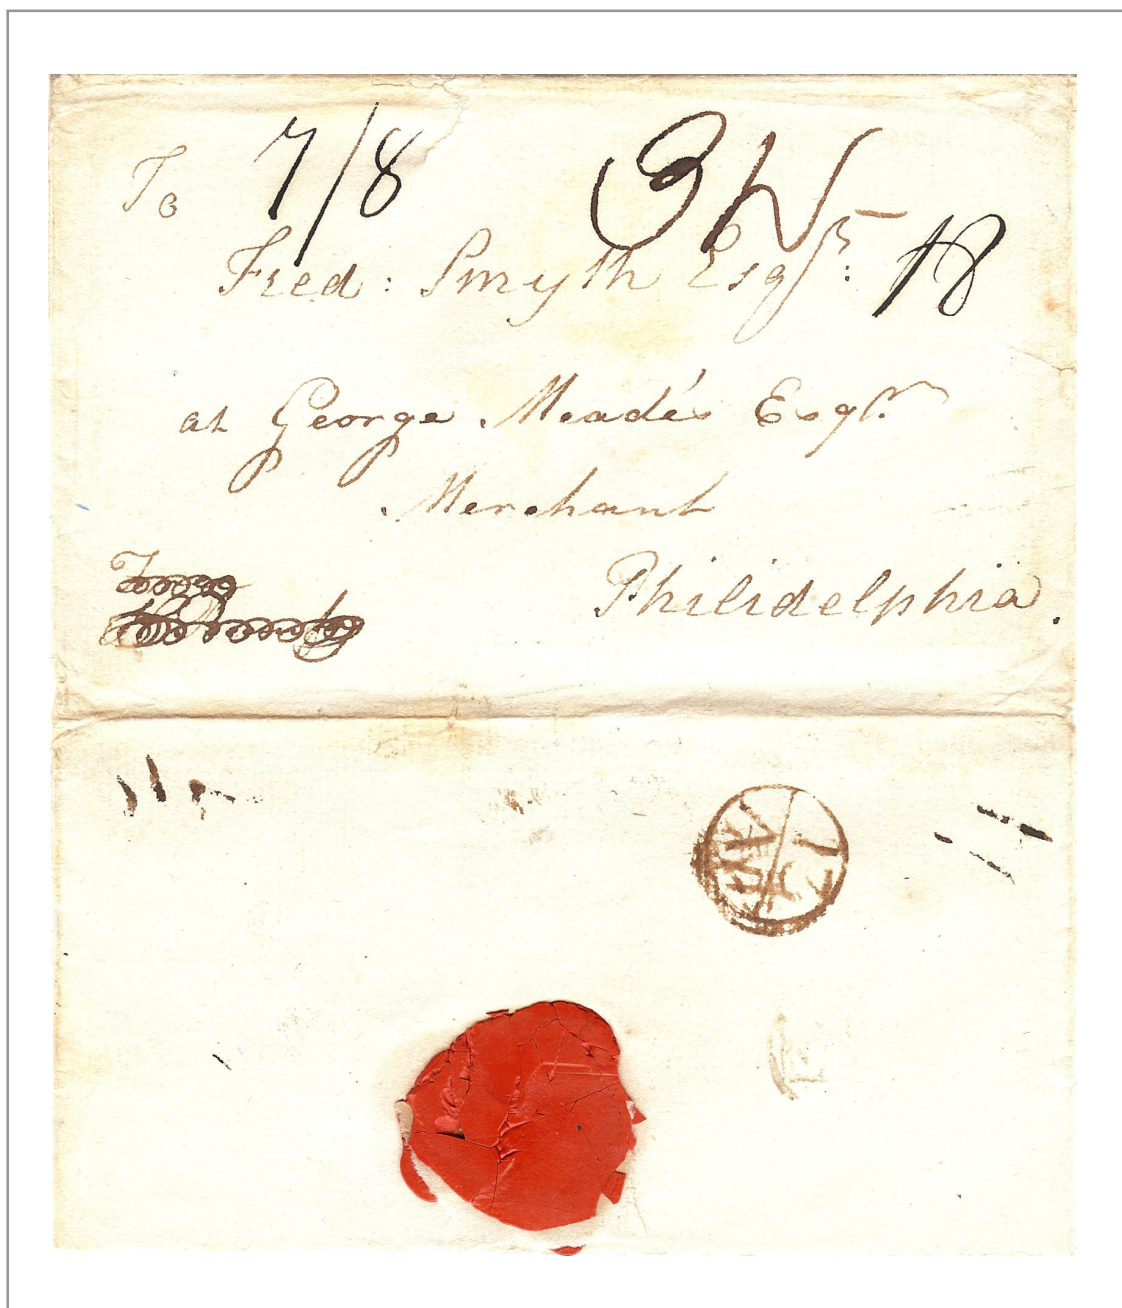 To 7/8
Fred: Smyth Esqr: 18
at George Meade's Esqr.
Merchant
Philidelphia.